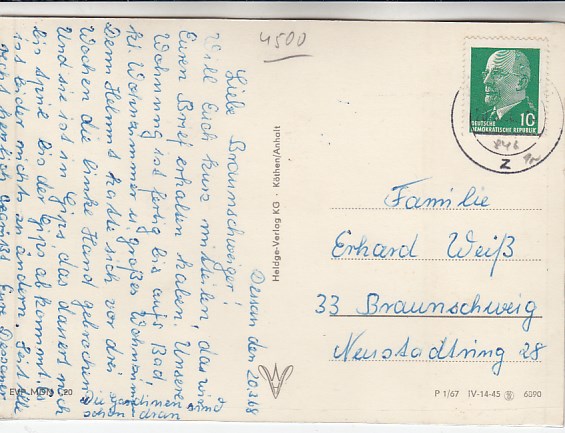 4500
DEUTSCHE
DEMOKRATISCHE REPUBLIK
10
Z
Dessau den 20.3.68
Liebe Braunschweiger!
Will Euch kurz mitteilen, das wir
Euren Brief erhalten haben. Unsere
Wohnung ist fertig bis aufs Bad,
kl. Wohnzimmer u. großes Wohnzimm
Denn Helmut hatte sich vor drei
Wochen die linke Hand gebrochen
Und sie ist in Gips, das dauert noch
bis Bis der Gips ab kommt.
ist leider nichts zu ändern. Seit alle
recht herzlich gegrüßt Eure Dessauer
Die Gardinen sind
schon dran
EVP M(DN) 1,20
Heldge-Verlag KG · Köthen/Anhalt
Familie
Erhard Weiß
33 Braunschweig
Neustadtring 28
P 1/67 IV-14-45 6090